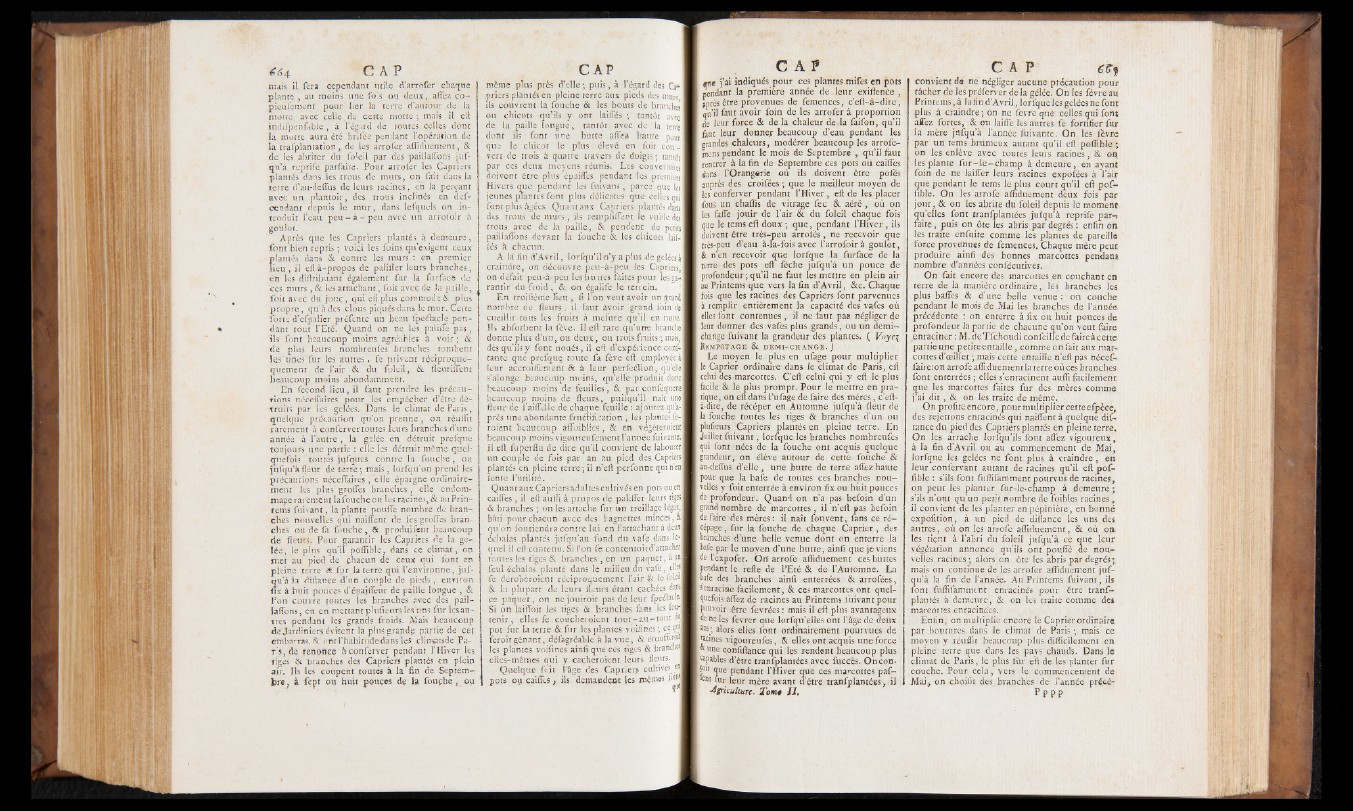 664 C A P
mais il sera cependant utile d'arroser chaque
plante, au moins une fois ou deux, assez co-
pieusement pour lier la terre d'autour de la
motte avec celle de cette motte ; mais il est
indispensable, à l'égard de toutes celles dont
la motte aura été brisée pendant l'opération de
la transplantation, de les arroser assiduement, &
de les abriter du soleil par des paillassons jus-
qu'à reprise parfaite. Pour arroser les Capriers
plantés dans les trous de murs, on fait dans la
terre d'au-dessus de leurs racines, en la perçant
avec un plantoir, des trous inclinés en des-
cendant depuis le mur, dans lesquels on in-
troduit l'eau peu-à-peu avec un arrosoir à
goulot.
Après que les Capriers plantés à demeure,
sont bien repris ; voici les soins qu'exigent ceux
plantés dans & contre les murs : en premier
lieu, il est à-propos de palisser leurs branches,
en les distribuant également sur la surface de
ces murs, & les attachant, soit avec de la paille,
soit avec du jonc, qui est plus commode & plus
propre, qu'à des clous piqués dans le mur. Cette
sorte d'espalier présente un beau spectacle pen-
dant tout l'Eté. Quand on ne les palisse pas,
ils sont beaucoup moins agréables à voir ; &
de plus leurs nombreuses branches tombent
les unes sur les autres, se privent réciproque-
quement de l'air & du soleil, & fleurissent
beaucoup moins abondamment.
En second lieu, il faut prendre les précau-
tions nécessaires pour les empêcher d'être dé-
truits par les gelées. Dans le climat de Paris,
quelque précaution qu'on prenne, on réussit
rarement à conserver toutes leurs branches d'une
année à l'autre, la gelée en détruit presque
toujours une partie : elle les détruit même quel-
quefois toutes jusques contre la souche, ou
jusqu'à fleur de terre ; mais, lorsqu'on prend les
précautions nécessaires, elle épargne ordinaire-
ment les plus grosses branches, elle endom-
mage rarement la souche ou les racines, & au Prin-
tems suivant, la plante pousse nombre de bran-
ches nouvelles qui naissent de ses grosses bran-
ches ou de sa souche, & produisent beaucoup
de fleurs. Pour garantir les Capriers de la ge-
lée, le plus qu'il possible, dans ce climat, on
met au pied de chacun de ceux qui sont en
pleine terre & sur la terre qui l'environne, jus-
qu'à la distance d'un couple de pieds, environ
six à huit pouces d'épaisseur de paille longue, &
l'on couvre toutes les branches avec des pail-
lassons, en en mettant plusieurs les uns sur les au-
tres pendant les grands froids. Mais beaucoup
de Jardiniers évitent la plus grande partie de cet
embarras, & ont l'habitude dans les climats de Pa-
ris, de renoncer à conserver pendant l'Hiver les
tiges & branches des Capriers plantés en plein
air. Ils les coupent toutes à la fin de Septem-
bre, à sept ou huit pouces de la souche, ou
C A P
même plus près d'elle ; puis, à l'égard des Ca-
priers plantés en pleine terre aux pieds des murs,
ils couvrent la souche & les bouts de branches
ou chicots qu'ils y ont laissés ; tantôt avec
de la paille longue, tantôt avec de la terre
dont ils font une butte assez haute pour
que le chicot le plus élevé en soit cou-
vert de trois à quatre travers de doigts ; tantôt
par ces deux moyens réunis. Les couvertures
doivent être plus épaisses pendant les premiers
Hivers que pendant les suivans, parce que les
jeunes plantes sont plus délicates que celles qui
sont plus âgées. Quant aux Capriers plantés dans
des trous de murs, ils remplissent le vuide des
trous avec de la paille, & pendent de petits
paillassons devant la souche & les chicots lais-
sés à chacun.
A la fin d'Avril, lorsqu'il n'y a plus de gelées à
craindre, on découvre peu-à-peu les Capriers,
on défait peu-à-peu les buttes faites pour les ga-
rantir du froid, & on égalise le terrein.
En troisième lieu, si l'on veut avoir un grand
nombre de fleurs, il faut avoir grand soin de
cueillir tous les fruits à mesure qu'il en noue.
Ils absorbent la sève. Il est rare qu'une branche
donne plus d'un, ou deux, ou trois fruits ; mais,
dès qu'ils y sont noués, il est d'expérience cons-
tante que presque toute sa sève est employée à
leur accroissement & à leur perfection, qu'elle
s'alonge beaucoup moins, qu'elle produit donc
beaucoup moins de feuilles, & par conséquent
beaucoup moins de fleurs, puisqu'il naît une
fleur de l'aisselle de chaque feuille : ajoutez qu'a-
près une abondante fructification, les plantes se-
roient beaucoup affoiblies, & en végéteroient
beaucoup moins vigoureusement l'année suivante.
Il est superflu de dire qu'il convient de labourer
un couple de fois par an au pied des Capriers
plantés en pleine terre ; il n'est personne qui n'en
sente l'utilité.
Quant aux Capriers adultes cultivés en pots ou en
caisses, il est aussi à propos de palisser leurs tiges
& branches ; on les attache sur un treillage léger,
bâti pour chacun avec des baguettes minces, &
qu'on soutiendra contre lui en l'attachant à deux
échalas plantés jusqu'au fond du vase dans le-
quel il est contenu. Si l'on se contentoit d'attacher
toutes les tiges & branches, en un paquet, à un
seul échalas planté dans le milieu du vase, elles
se déroberoient réciproquement l'air & le soleil
& la plupart de leurs fleurs étant cachées dans
ce paquet, on ne jouiroit pas de leur spectacle.
Si on laissoit les tiges & branches sans les sou-
tenir, elles se coucheroient tout-au-tour du
pot sur la terre & sur les plantes voisines ; ce qui
seroit gênant, désagréable à la vue, & étoufferoit
les plantes voisines ainsi que ces tiges & branches
elles-mêmes qui y cacheroient leurs fleurs.
Quelque soit l'âge des Capriers cultivés en
pots ou caisses, ils demandent les mêmes soins
que
C A P
que j'ai indiqués pour ces plantes mises en pots
pendant la première année de leur existence,
après être provenues de semences, c'est-à-dire,
qu'il faut avoir soin de les arroser à proportion
de leur force & de la chaleur de la saison, qu'il
faut leur donner beaucoup d'eau pendant les
grandes chaleurs, modérer beaucoup les arrose-
mens pendant le mois de Septembre, qu'il faut
rentrer à la fin de Septembre ces pots ou caisses
dans l'Orangerie où ils doivent être posés
auprès des croisées ; que le meilleur moyen de
les conserver pendant l'Hiver, est de les placer
sous un chassis de vitrage sec & aéré, où on
les fasse jouir de l'air & du soleil chaque fois
que le tems est doux ; que, pendant l'Hiver, ils
doivent être très-peu arrosés, ne recevoir que
très-peu d'eau à-la-fois avec l'arrosoir à goulot,
& n'en recevoir que lorsque la surface de la
terre des pots est sèche jusqu'à un pouce de
profondeur ; qu'il ne faut les mettre en plein air
au Printems que vers la fin d'Avril, &c. Chaque
fois que les racines des Capriers sont parvenues
à remplir entièrement la capacité des vases où
elles sont contenues, il ne faut pas négliger de
leur donner des vases plus grands, ou un demi-
change suivant la grandeur des plantes. ( Voyez
REMPOTAGE & DEMI-CHANGE. )
Le moyen le plus en usage pour multiplier
le Caprier ordinaire dans le climat de Paris, est
celui des marcottes. C'est celui qui y est le plus
facile & le plus prompt. Pour le mettre en pra-
tique, on est dans l'usage de faire des mères, c'est-
à-dire, de récéper en Automne jusqu'à fleur de
la souche toutes les tiges & branches d'un ou
plusieurs Capriers plantés en pleine terre. En
Juillet suivant, lorsque les branches nombreuses
qui sont nées de la souche ont acquis quelque
grandeur, on élève autour de cette souche &
au-dessus d'elle, une butte de terre assez haute
pour que la base de toutes ces branches nou-
velles y soit enterrée à environ six ou huit pouces
de profondeur. Quand on n'a pas besoin d'un
grand nombre de marcottes, il n'est pas besoin
de faire des mères : il naît souvent, sans ce ré-
cépage, sur la souche de chaque Caprier, des
branches d'une belle venue dont on enterre la
base par le moyen d'une butte, ainsi que je viens
de l'exposer. On arrose assiduement ces buttes
pendant le reste de l'Eté & de l'Automne. La
base des branches ainsi enterrées & arrosées,
s'enracine facilement, & ces marcottes ont quel-
quefois assez de racines au Printems suivant pour
pouvoir être sevrées : mais il est plus avantageux
de ne les sevrer que lorsqu'elles ont l'âge de deux
ans ; alors elles sont ordinairement pourvues de
racines vigoureuses, & elles ont acquis une force
& une consistance qui les rendent beaucoup plus
capables d'être transplantées avec succès. On con-
çoit que pendant l'Hiver que ces marcottes pas-
sent sur leur mère avant d'être transplantées, il
Agriculture. Tome II.
C A P 665
convient de ne négliger aucune précaution pour
tâcher de les préserver de la gelée. On les sèvre au
Printems, à la fin d'Avril, lorsque les gelées ne sont
plus à craindre ; on ne sevre que celles qui sont
assez fortes, & on laisse les autres se fortifier sur
la mère jusqu'à l'année suivante. On les sèvre
par un tems brumeux autant qu'il est possible ;
on les enlève avec toutes leurs racines, & on
les plante sur-le-champ à demeure, en ayant
soin de ne laisser leurs racines exposées à l'air
que pendant le tems le plus court qu'il est pos-
sible. On les arrose assiduement deux fois par
jour, & on les abrite du soleil depuis le moment
qu'elles sont transplantées jusqu'à reprise par-
faite, puis on ôte les abris par degrés : enfin on
les traite ensuite comme les plantes de pareille
force provenues de semences. Chaque mère peut
produire ainsi des bonnes marcottes pendant
nombre d'années consécutives.
On fait encore des marcottes en couchant en
terre de la manière ordinaire, les branches les
plus basses & d'une belle venue : on couche
pendant le mois de Mai les branches de l'année
précédente : on enterre à six ou huit pouces de
profondeur la partie de chacune qu'on veut faire
enraciner : M. de Tschoudi conseille de faire à cette
partie une petite entaille, comme on fait aux mar-
cottes d'œillet ; mais cette entaille n'est pas néces-
saire : on arrose assiduement la terre où ces branches
sont enterrées ; elles s'enracinent aussi facilement
que les marcottes faites sur des mères comme
j'ai dit, & on les traite de même.
On profite encore, pour multiplier cette espèce,
des rejettons enracinés qui naissent à quelque dis-
tance du pied des Capriers plantés en pleine terre.
On les arrache lorsqu'ils sont assez vigoureux,
à la fin d'Avril ou au commencement de Mai,
lorsque les gelées ne sont plus à craindre, en
leur conservant autant de racines qu'il est pos-
sible : s'ils sont suffisamment pourvus de racines,
on peut les planter sur-le-champ à demeure ;
s'ils n'ont qu'un petit nombre de foibles racines,
il convient de les planter en pépinière, en bonne
exposition, à un pied de distance les uns des
autres, où on les arrose assiduement, & où on
les tient à l'abri du soleil jusqu'à ce que leur
végétation annonce qu'ils ont poussé de nou-
velles racines ; alors on ôte les abris par degrés ;
mais on continue de les arroser assiduement jus-
qu'à la fin de l'année. Au Printems suivant, ils
sont suffisamment enracinés pour être trans-
plantés à demeure, & on les traite comme des
marcottes enracinées.
Enfin, on multiplie encore le Caprier ordinaire
par boutures dans le climat de Paris ; mais ce
moyen y réussit beaucoup plus difficilement en
pleine terre que dans les pays chauds. Dans le
climat de Paris, le plus sûr est de les planter sur
couche. Pour cela, vers le commencement de
Mai, on choisit des branches de l'année précé-
P p p p